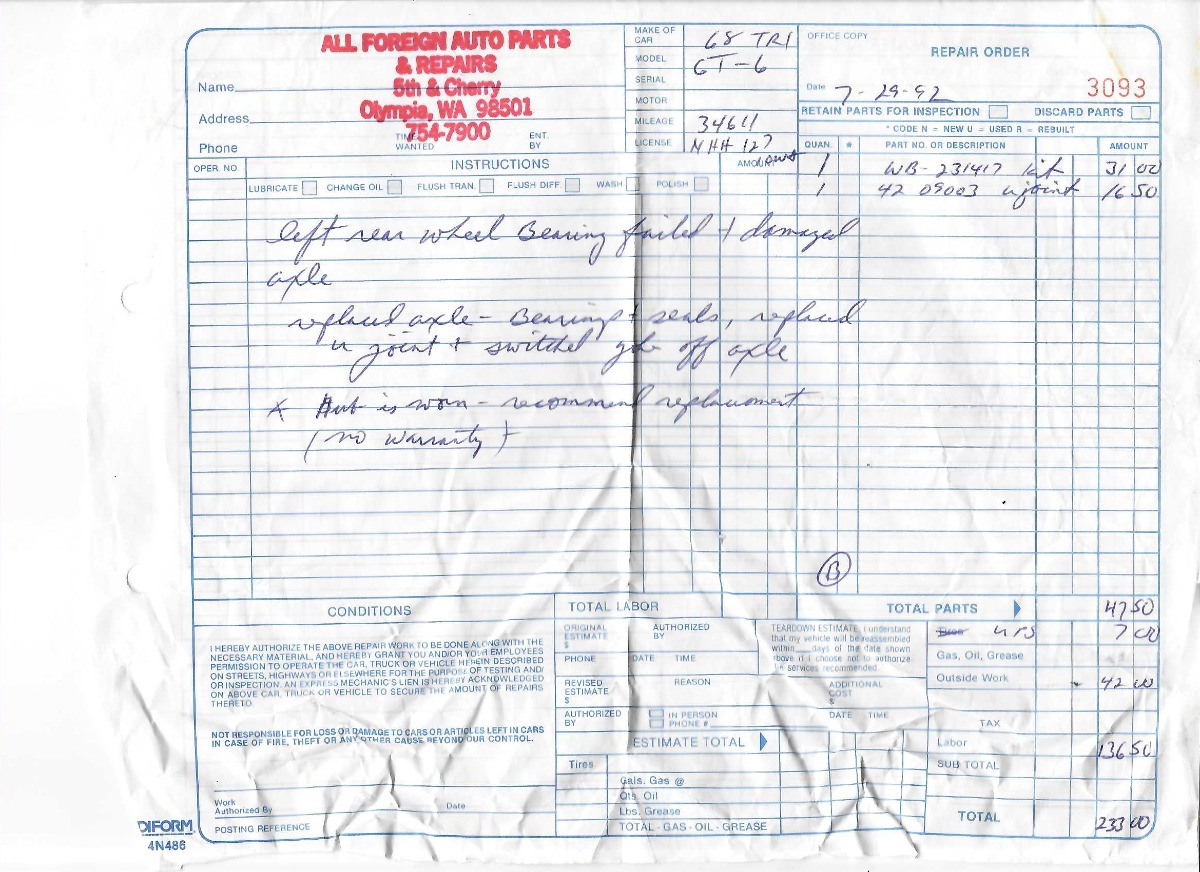 ALL FOREIGN AUTO PARTS
& REPAIRS
5th & Cherry
Olympia, WA 98501
754-7900
Name
Address
Phone
TIME WANTED
ENT. BY
MAKE OF CAR 68 TRI
MODEL GT-6
SERIAL
MOTOR
MILEAGE 34611
LICENSE NHH 127
OFFICE COPY
REPAIR ORDER
Date 7-29-92
3093
RETAIN PARTS FOR INSPECTION DISCARD PARTS
* CODE N = NEW U = USED R = REBUILT
QUAN. * PART NO. OR DESCRIPTION AMOUNT
1 WB-231417 kit 31 00
1 42 09003 u joint 16 50
OPER. NO INSTRUCTIONS AMOUNT
LUBRICATE CHANGE OIL FLUSH TRAN. FLUSH DIFF. WASH POLISH
left rear wheel Bearing failed + damaged
axle
replaced axle - Bearings + seals, replaced
u joint + switched yoke off axle
* Hub is worn - recommend replacement
(no warranty)
B
CONDITIONS
I HEREBY AUTHORIZE THE ABOVE REPAIR WORK TO BE DONE ALONG WITH THE
NECESSARY MATERIAL, AND HEREBY GRANT YOU AND/OR YOUR EMPLOYEES
PERMISSION TO OPERATE THE CAR, TRUCK OR VEHICLE HEREIN DESCRIBED
ON STREETS, HIGHWAYS OR ELSEWHERE FOR THE PURPOSE OF TESTING AND/
OR INSPECTION. AN EXPRESS MECHANIC'S LIEN IS HEREBY ACKNOWLEDGED
ON ABOVE CAR, TRUCK OR VEHICLE TO SECURE THE AMOUNT OF REPAIRS
THERETO.
NOT RESPONSIBLE FOR LOSS OR DAMAGE TO CARS OR ARTICLES LEFT IN CARS
IN CASE OF FIRE, THEFT OR ANY OTHER CAUSE BEYOND OUR CONTROL.
Work
Authorized By Date
POSTING REFERENCE
DIFORM
4N486
TOTAL LABOR
ORIGINAL ESTIMATE $
AUTHORIZED BY
PHONE DATE TIME
REVISED ESTIMATE $
REASON
AUTHORIZED BY
IN PERSON
PHONE #
TEARDOWN ESTIMATE. I understand
that my vehicle will be reassembled
within days of the date shown
above if I choose not to authorize
the services recommended.
ADDITIONAL COST $
DATE TIME
ESTIMATE TOTAL
Tires
Gals. Gas @
Qts. Oil
Lbs. Grease
TOTAL - GAS - OIL - GREASE
TOTAL PARTS 47 50
7 00
Gas, Oil, Grease
Outside Work 42 00
TAX
Labor 136 50
SUB TOTAL
TOTAL 233 00